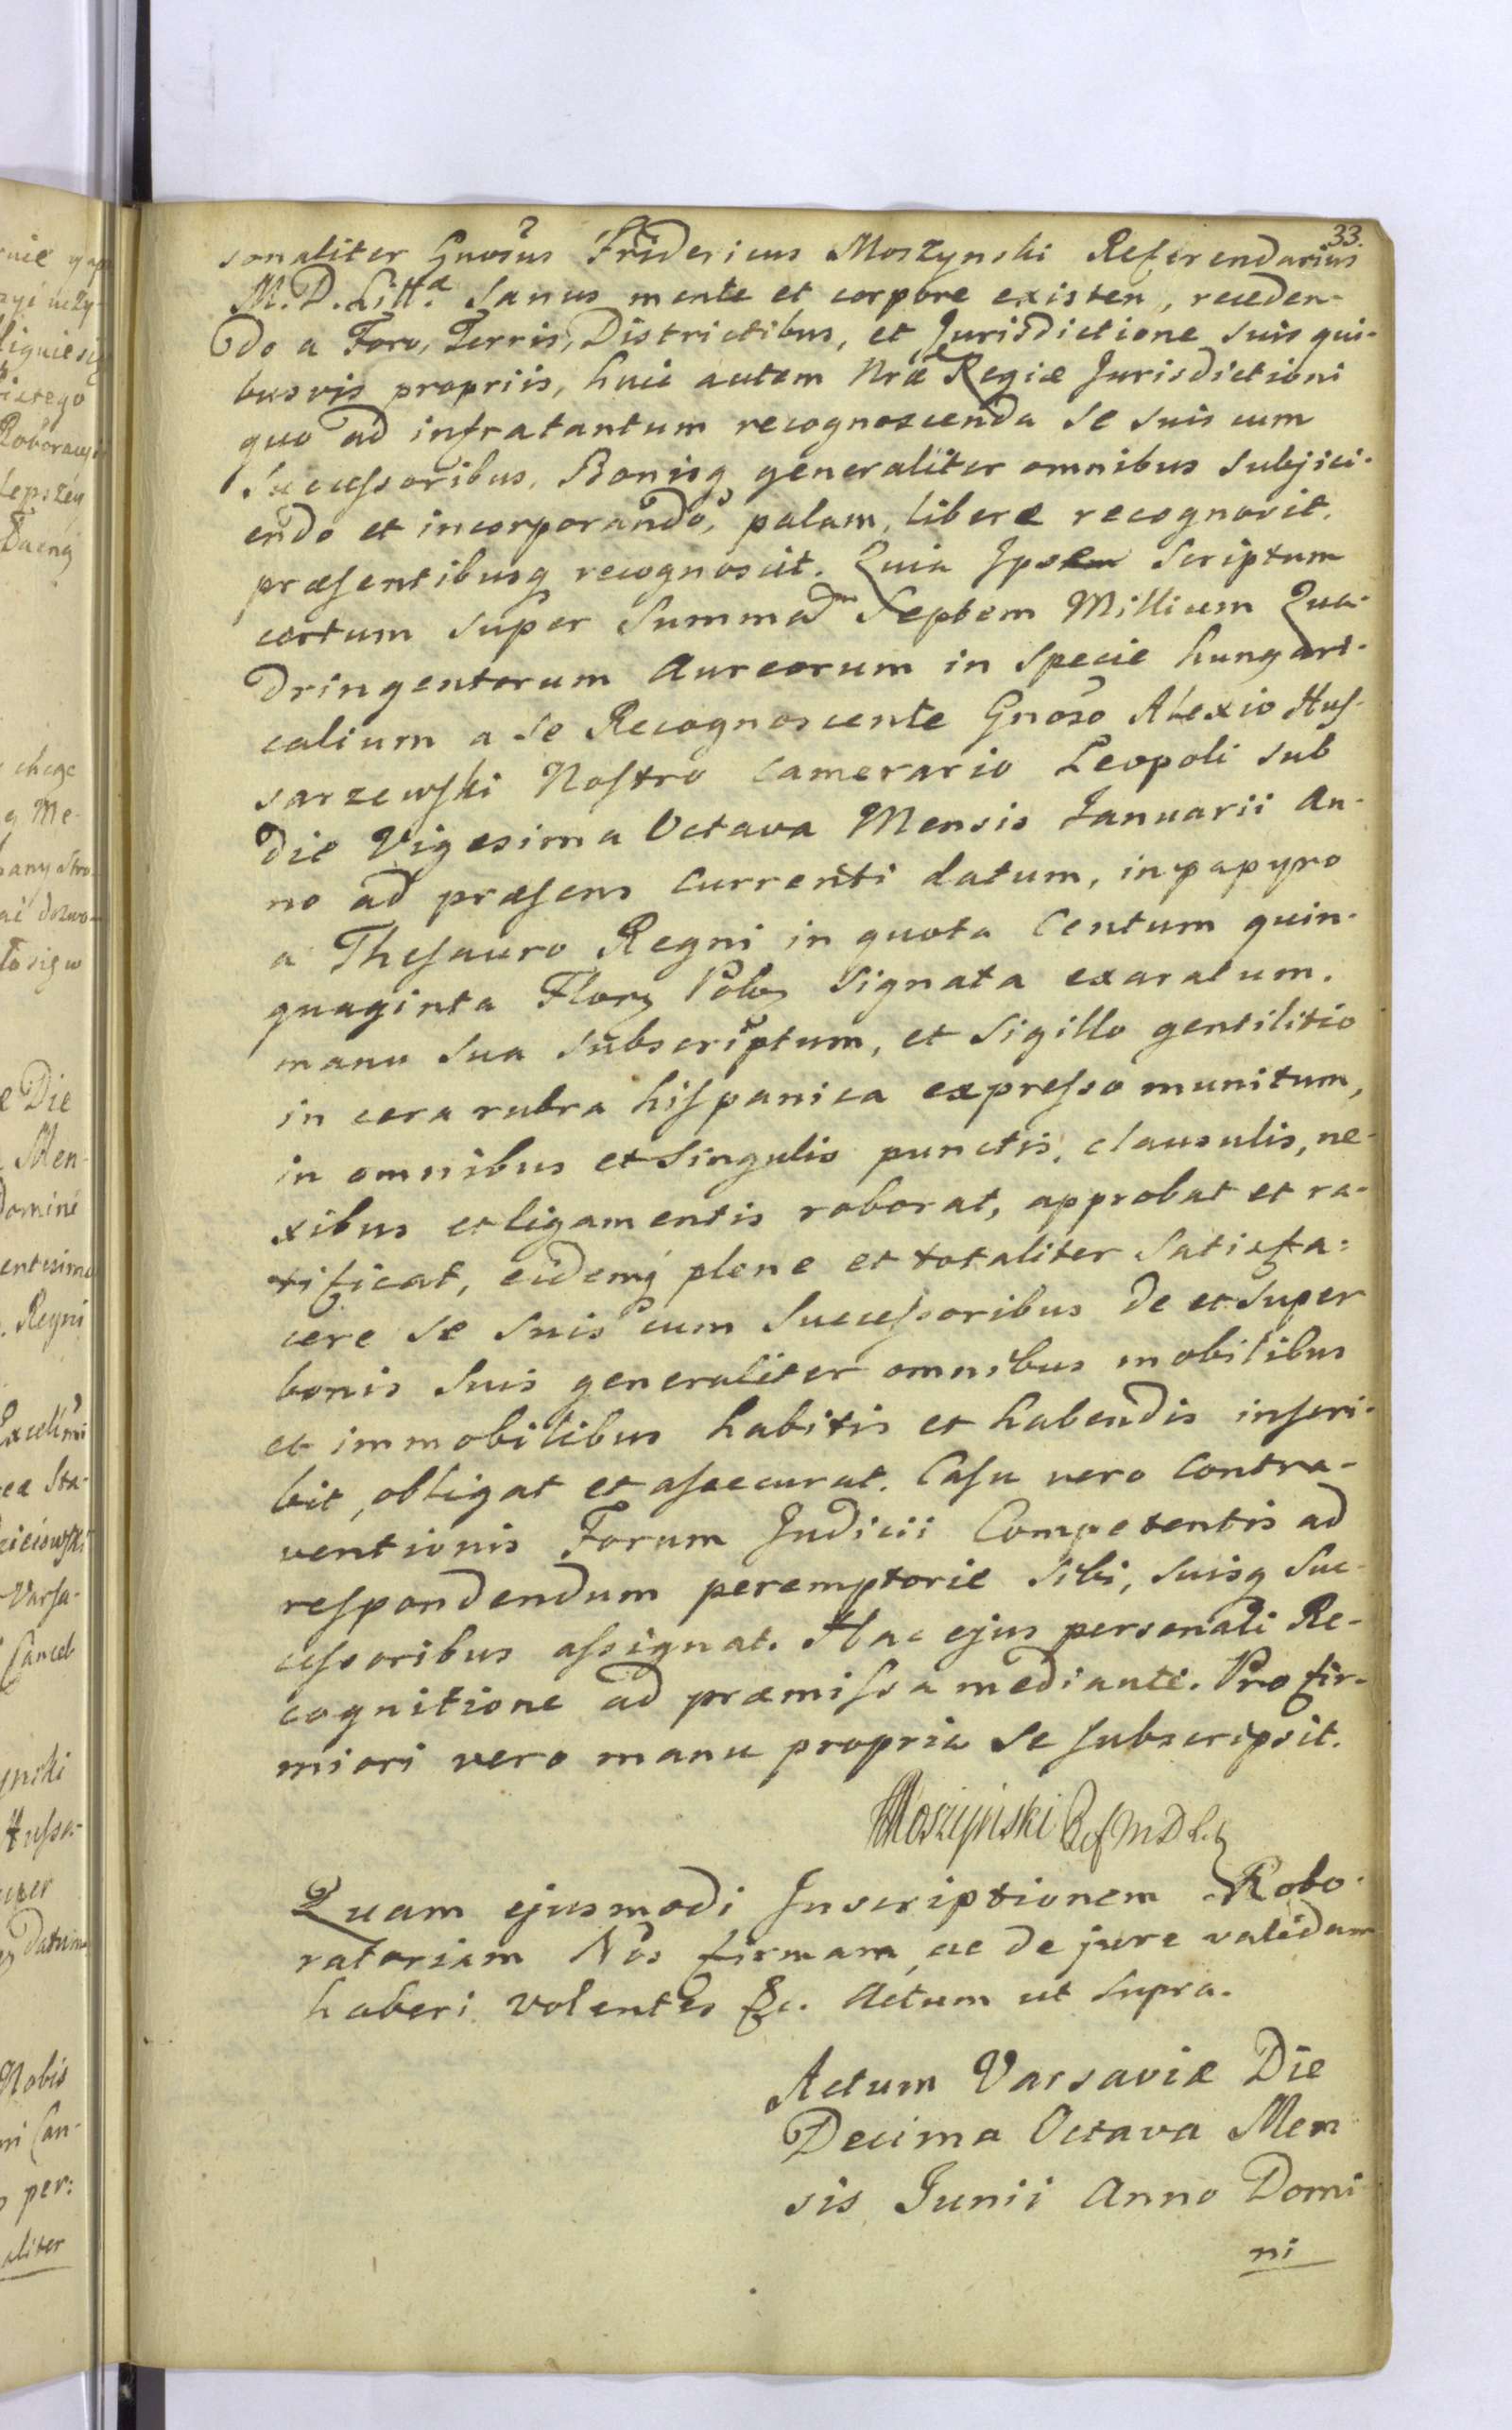 33.
sonaliter Gnosus Fridericus Moszynski Referendarius
M. D. Litt.æ Sanus mente et corpore existen, receden-
do a Foro, Terris, Districtibus, et Jurisdictione suis qui-
busvis propriis, huic autem Nræ Regiæ Jurisdictioni
quo ad infratantum recognoscenda se suis cum
Successoribus, Bonisq generaliter omnibus subjici-
endo et incorporando, palam, libere recognovit,
præsentibusq recognoscit. Quia Ipse Scriptum
certum super Summam Septem Millium Qua-
dringentorum Aureorum in specie hungari-
calium a se Recognoscente Gnoso Alexio Hus-
sarzewski Nostro Camerario Leopoli sub
die Vigesima Octava Mensis Januarii An-
no ad præsens currenti datum, in papyro
a Thesauro Regni in quota Centum quin-
quaginta Flor Pol signata exaratum.
manu sua subscriptum, et Sigillo gentilitio
in cera rubra hispanica expresso munitum,
in omnibus et singulis punctis, clausulis, ne-
xibus et ligamentis roborat, approbat et ra-
tificat, eidemq plene et totaliter satisfa=
cere se suis cum Successoribus de et super
bonis suis generaliter omnibus mobilibus
et immobilibus habitis et habendis inscri-
bit, obligat et assecurat. Casu vero contra-
ventionis Forum Judicii Competentis ad
respondendum peremptorie sibi, suisq Suc-
cessoribus assignat. Hac ejus personali Re-
cognitione ad præmissa mediante. Pro fir-
miori vero manu propria se subscripsit.
Moszyński Ref M D L.
Quam ejusmodi Inscriptionem Robo-
ratoriam Nos firmam ac de jure validam
haberi volentes &c. Actum ut supra.
Actum Varsaviæ Die
Decima Octava Men
sis Junii Anno Domi-
ni